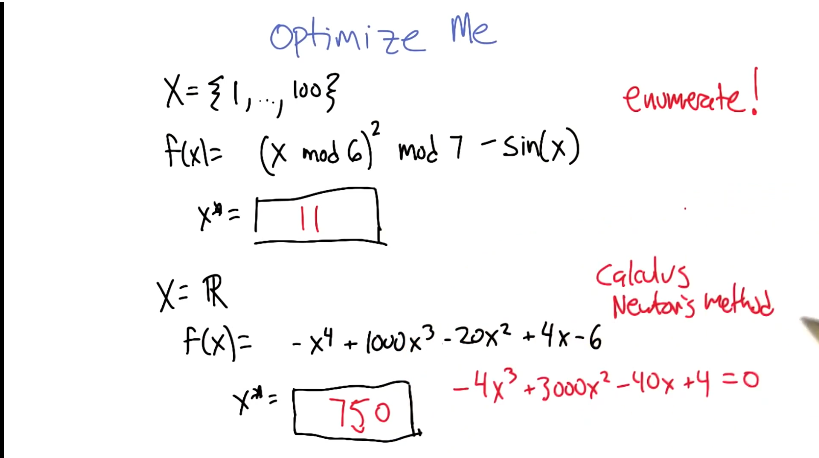 Optimize Me
X = {1,..,100}
enumerate!
f(x)= (x mod 6)² mod 7 - sin(x)
x* = 11
Calculus
Newton's method
X = ℝ
f(x)= -x⁴ + 1000x³ - 20x² + 4x - 6
-4x³ + 3000x² - 40x + 4 = 0
x* = 750